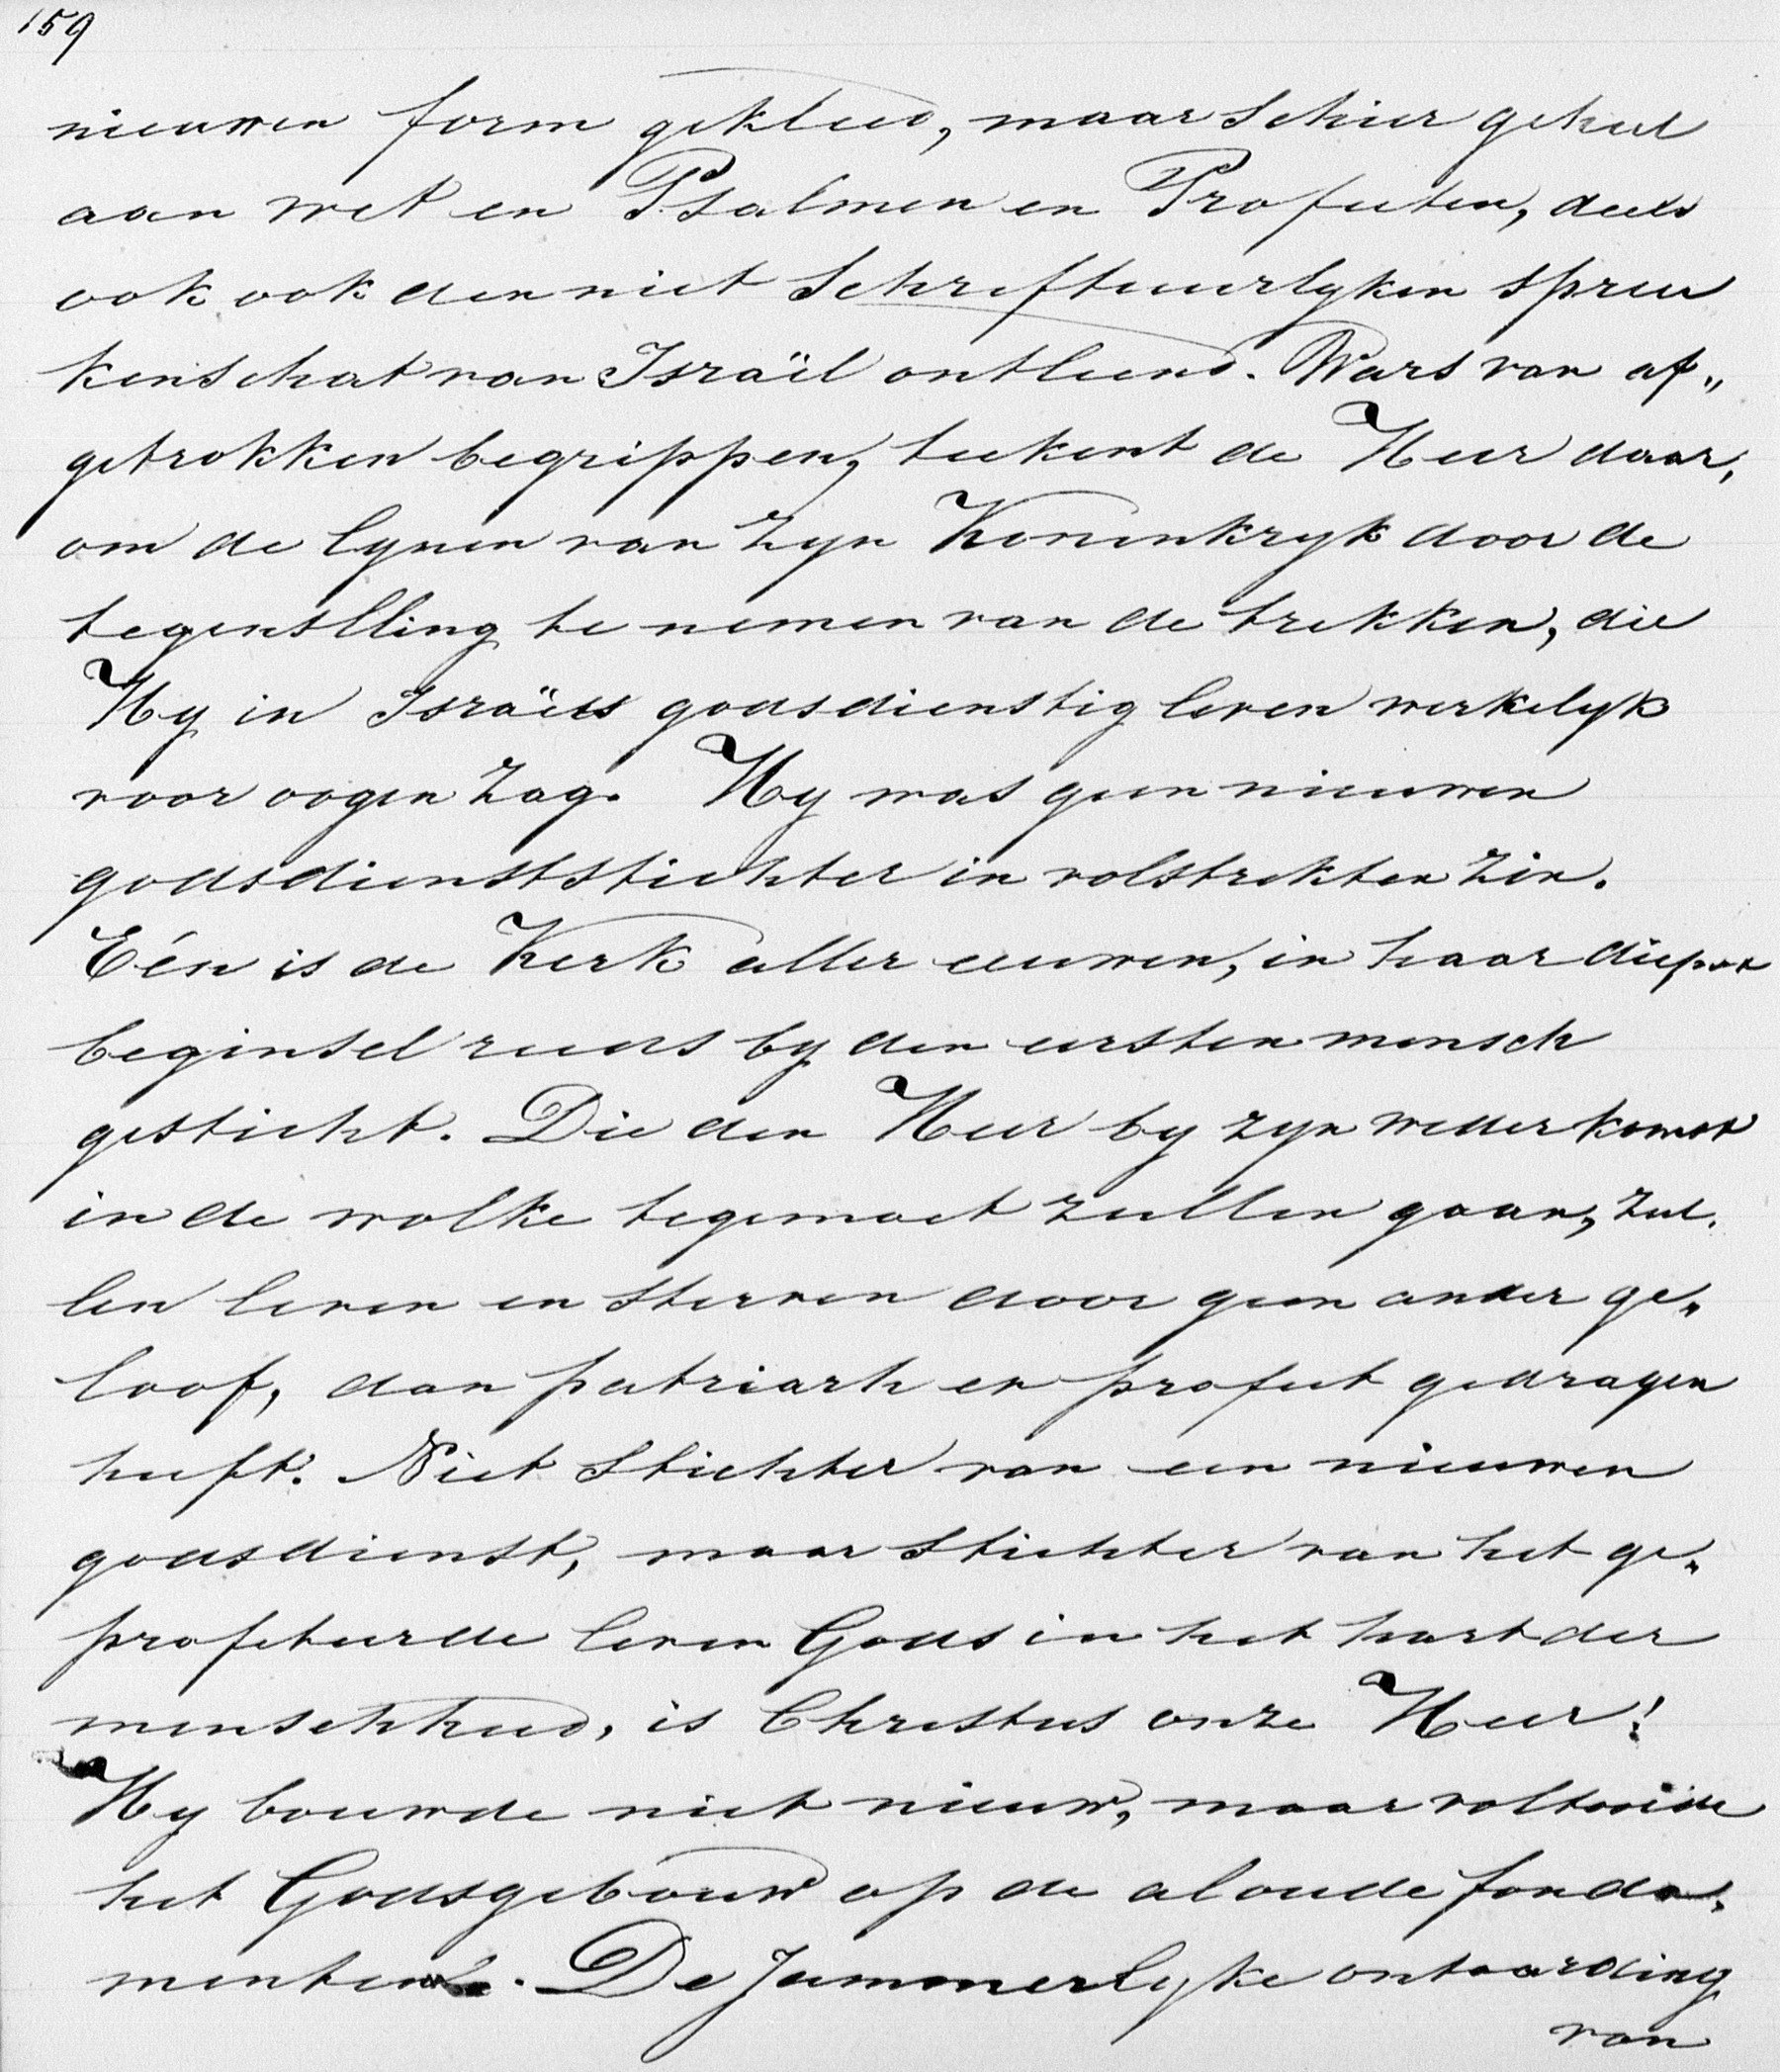 159
nieuwen form gekleed, maar schier geheel
aan wet en Psalmen en Profeeten, deels
ook ook den niet Schriftuurlyken spreu
kenschat van Israël ontleend. Wars van af„
getrokken begrippen, teekent de Heer daar,
om de lynen van zyn Koninkryk door de
tegenstlling te nemen van de trekken, die
Hy in Israëls godsdienstig leven werkelyk
voor oogen zag. Hy was geen nieuwen
godsdienststichter in volstrekten zin.
Eén is de Kerk aller eeuwen, in haar diepst
beginsel reeds by den eersten mensch
gesticht. Die den Heer by zyn wederkomst
in de wolke tegemoet zullen gaan, zul.
len leven en sterven door geen ander ge„
loof, dan patriarh en profeet gedragen
heeft. Niet Stichter van een nieuwen
godsdienst, maar Stichter van het ge„
profeteerde leven Gods in het hart der
menschheid, is Christus onze Heer!
Hy bouwde niet nieuw, maar voltooide
het Godsgebouw op de aloude fonda,
menten. De jammerlyke ontaarding
van